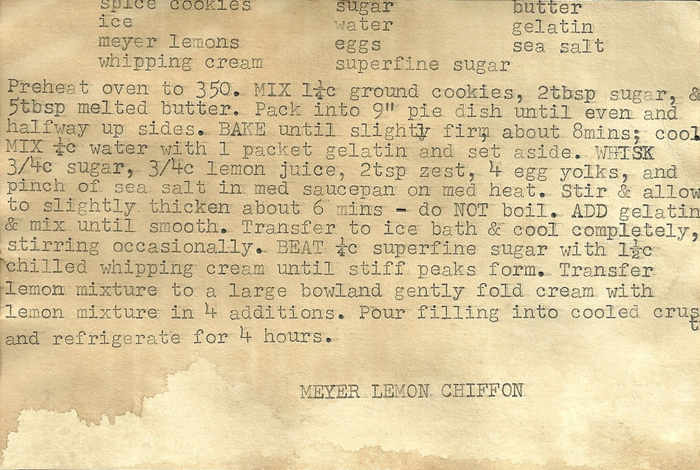 spice cookies sugar butter
ice water gelatin
meyer lemons eggs sea salt
whipping cream superfine sugar
Preheat oven to 350. MIX 1¼c ground cookies, 2tbsp sugar, &
5tbsp melted butter. Pack into 9" pie dish until even and
halfway up sides. BAKE until slightly firm, about 8mins; cool
MIX ¼c water with 1 packet gelatin and set aside. WHISK
3/4c sugar, 3/4c lemon juice, 2tsp zest, 4 egg yolks, and
pinch of sea salt in med saucepan on med heat. Stir & allow
to slightly thicken about 6 mins - do NOT boil. ADD gelatin
& mix until smooth. Transfer to ice bath & cool completely,
stirring occasionally. BEAT ¼c superfine sugar with 1½c
chilled whipping cream until stiff peaks form. Transfer
lemon mixture to a large bowland gently fold cream with
lemon mixture in 4 additions. Pour filling into cooled crust
and refrigerate for 4 hours.
MEYER LEMON CHIFFON